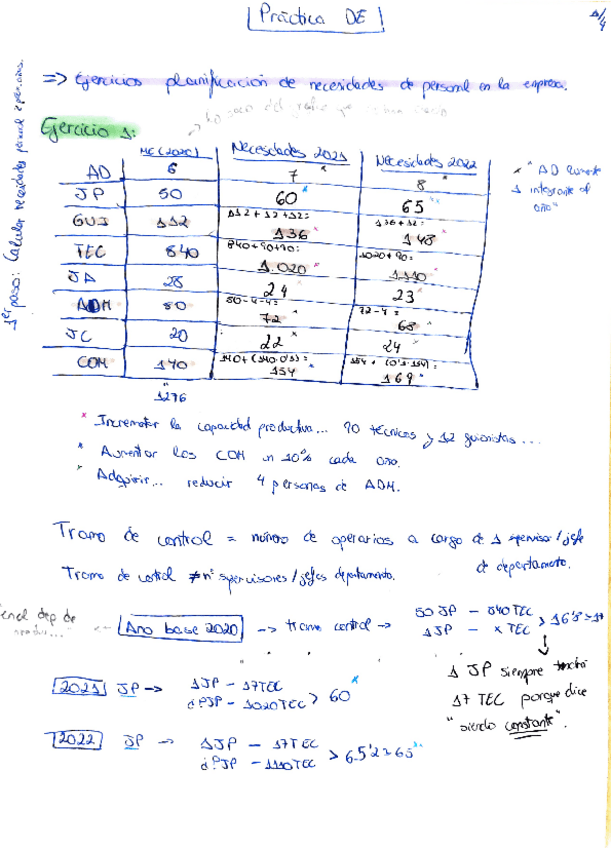 Práctica DE
1/4
=> Ejercicios planificación de necesidades de personal en la empresa.
Ejercicio 1:
1er paso: Calcular necesidades
ME (2020) Necesidades 2021 Necesidades 2022
AD 6 7 * 8 *
* "AD aumenta 1 integrante al año"
JP 50 60 * 65 *
GUI 112 112 + 12 + 12 = 136 * 136 + 12 = 148 *
TEC 840 840 + 90 + 90 = 1.020 * 1020 + 90 = 1110 *
JA 28 24 * 23 *
ADM 80 80 - 4 - 4 = 72 * 72 - 4 = 68 *
JC 20 22 * 24 *
COM 140 140 + (140 · 0'1) = 154 * 154 + (0'1 · 154) = 169 *
1276
* Incrementar la capacidad productiva... 90 técnicos y 12 guionistas...
* Aumentar los COM un 10% cada año.
* Adquirir... reducir 4 personas de ADM.
Tramo de control = número de operarios a cargo de 1 supervisor / jefe
de departamento.
Tramo de control ≠ nº supervisores / jefes departamento.
en el dep de
Año base 2020 -> tramo control -> 50 JP - 840 TEC
1 JP - x TEC > 16'8 = 17
1 JP siempre tendrá
17 TEC porque dice
"siendo constante".
2021 JP -> 1 JP - 17 TEC
¿? JP - 1020 TEC > 60 *
2022 JP -> 1 JP - 17 TEC
¿? JP - 1110 TEC > 65'2 = 65 *